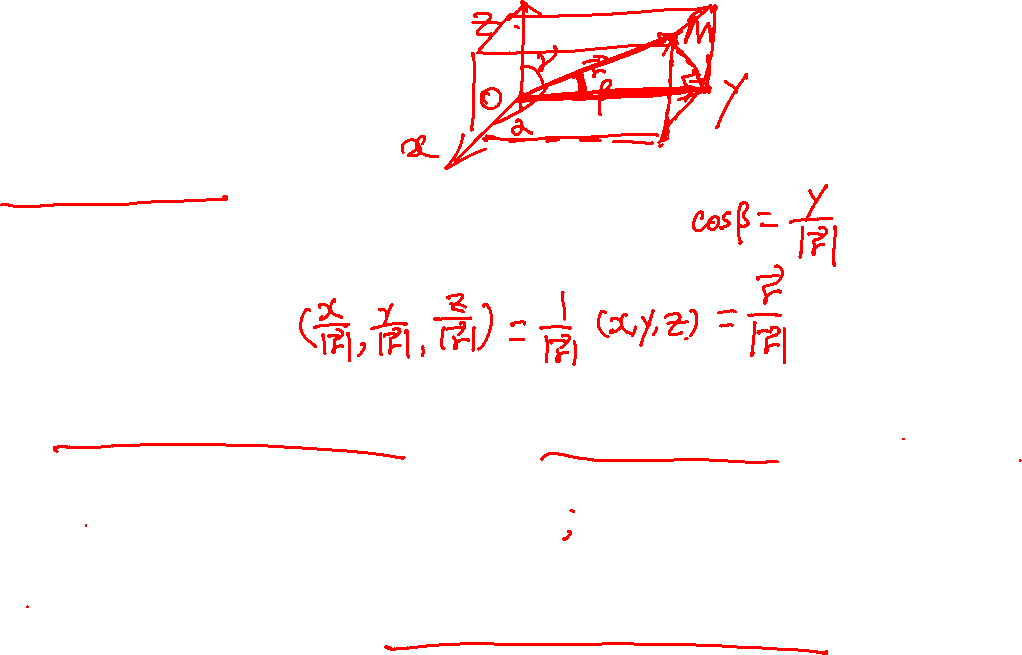 Z
γ
r⃗
M
O
β
Y
α
x
cosβ = y/|r⃗|
(x/|r⃗|, y/|r⃗|, z/|r⃗|) = 1/|r⃗| (x,y,z) = r⃗/|r⃗|
;